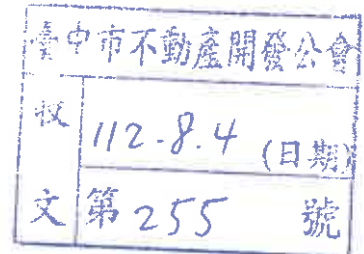 臺中市不動產開發公會
收文
112-8.4 (日期)
第255號